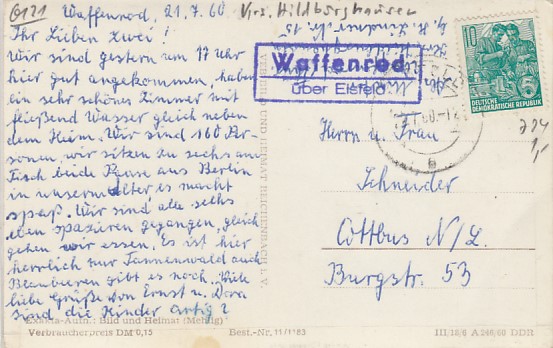 G121
Waffenrod, 21.7.60 Krs. Hildburghausen
Ihr Lieben zwei!
Wir sind gestern um 17 Uhr
hier gut angekommen, haben
ein sehr schönes Zimmer mit
fließend Wasser gleich neben
dem Heim. Wir sind 160 Per-
sonen, wir sitzen zu sechs am
Tisch beide Paare aus Berlin
in unserm Alter, es macht
spaß. Wir sind alle sechs
eben spazieren gegangen, gleich
gehen wir essen. Es ist hier
herrlich nur Tannenwald auch
Blaubeeren gibt es noch. Viele
liebe Grüße von Ernst u. Dora
sind die Kinder artig?
Exakta-Aufn.: Bild und Heimat (Mehlig)
Verbraucherpreis DM 0,15
Best.-Nr. 11/1183
III/18/6 A 246/60 DDR
UND HEIMAT REICHENBACH I. V.
Waffenrod
über Eisfeld
10
DEUTSCHE
DEMOKRATISCHE REPUBLIK
Herrn u. Frau
Schneider
Cottbus N/L.
Burgstr. 53